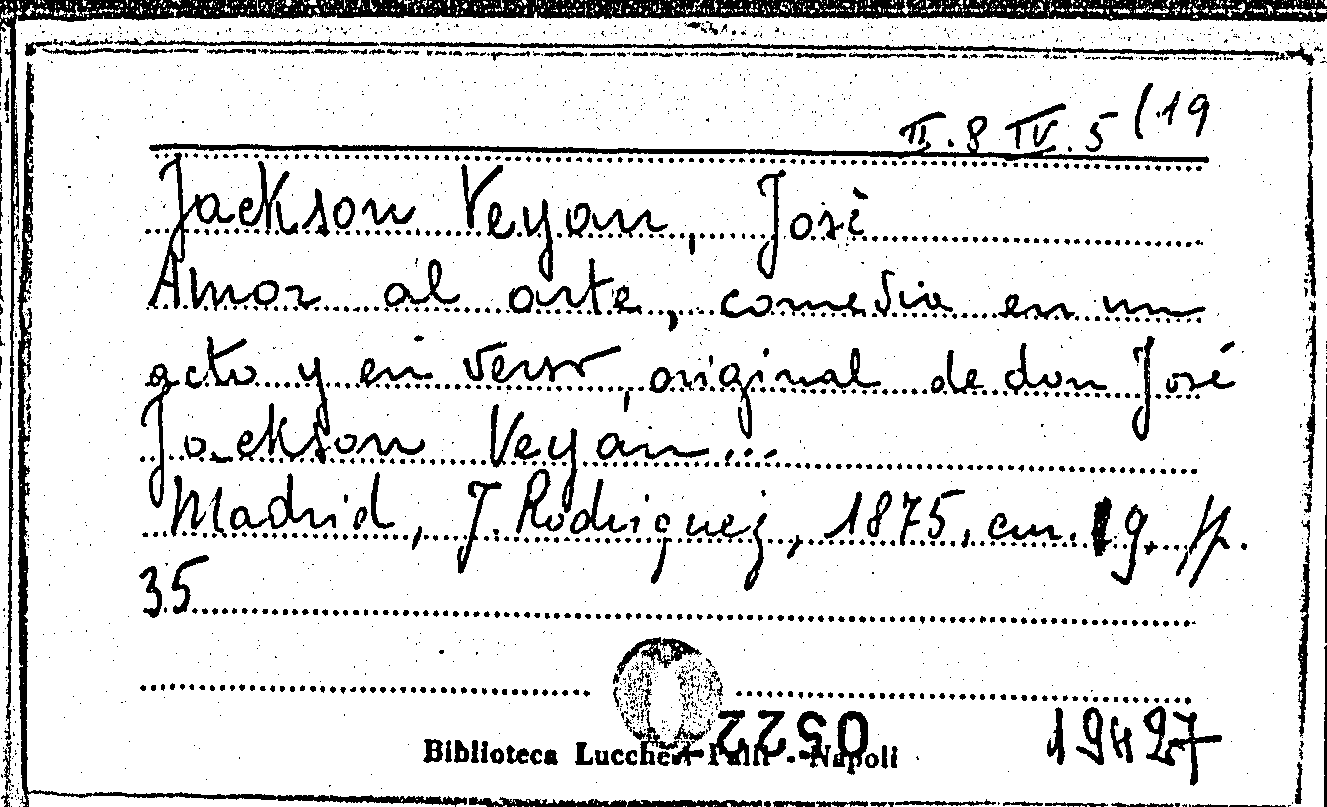 II.8 IV.5 (19
Jackson Veyan, José
Amor al arte, comedia en un
acto y en verso, original de don José
Jackson Veyán...
Madrid, J. Rodriguez, 1875, cm. 19. pp.
35
0522
19427
Biblioteca Lucchesi-Palli - Napoli